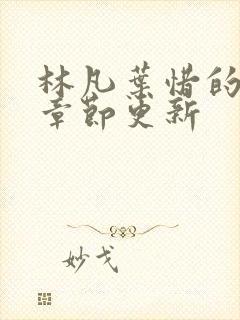 林凡葉惜的
章節更新
妙戈